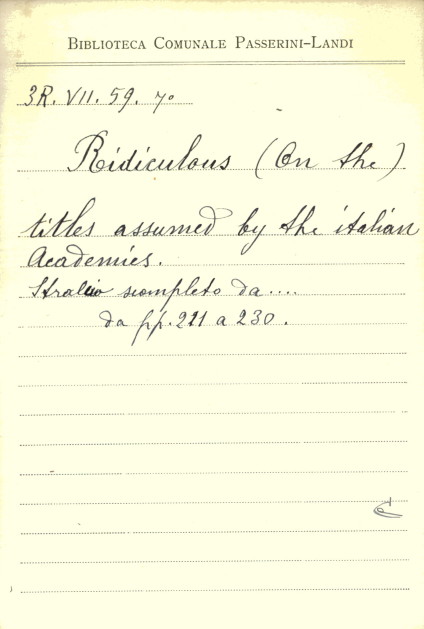 BIBLIOTECA COMUNALE PASSERINI-LANDI
3R. VII. 59. 7º
Ridiculous (On the)
titles assumed by the italian
Academies.
Stralcio scompleto da....
da pp. 221 a 230.